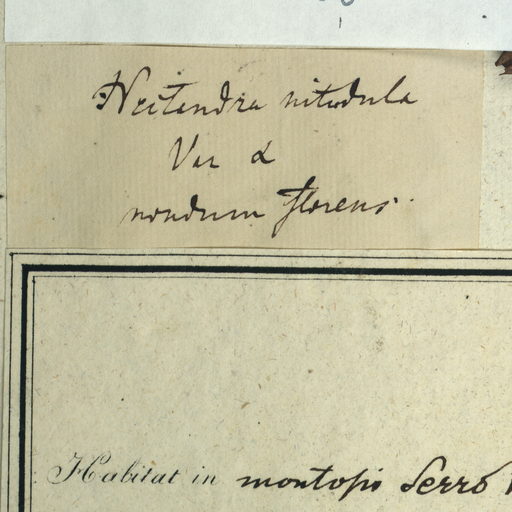 Nectandra nitidula
Var α
nondum florens.
Habitat in montosis Serro